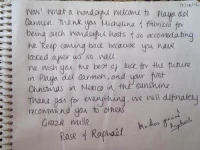 Wow! What a wonderful welcome to Playa del
Carmen. Thank you Micheline & Fabrice for
being such wonderful hosts & so accomodating
We keep coming back because you have
looked after us so well.
We wish you the best of luck for the future
in Playa del Carmen, and your first
Christmas in Mexico in the sunshine.
Thank you for everything. We will definately
recommend you to others.
Grazie mille
Rose & Raphaël.
Raphaël